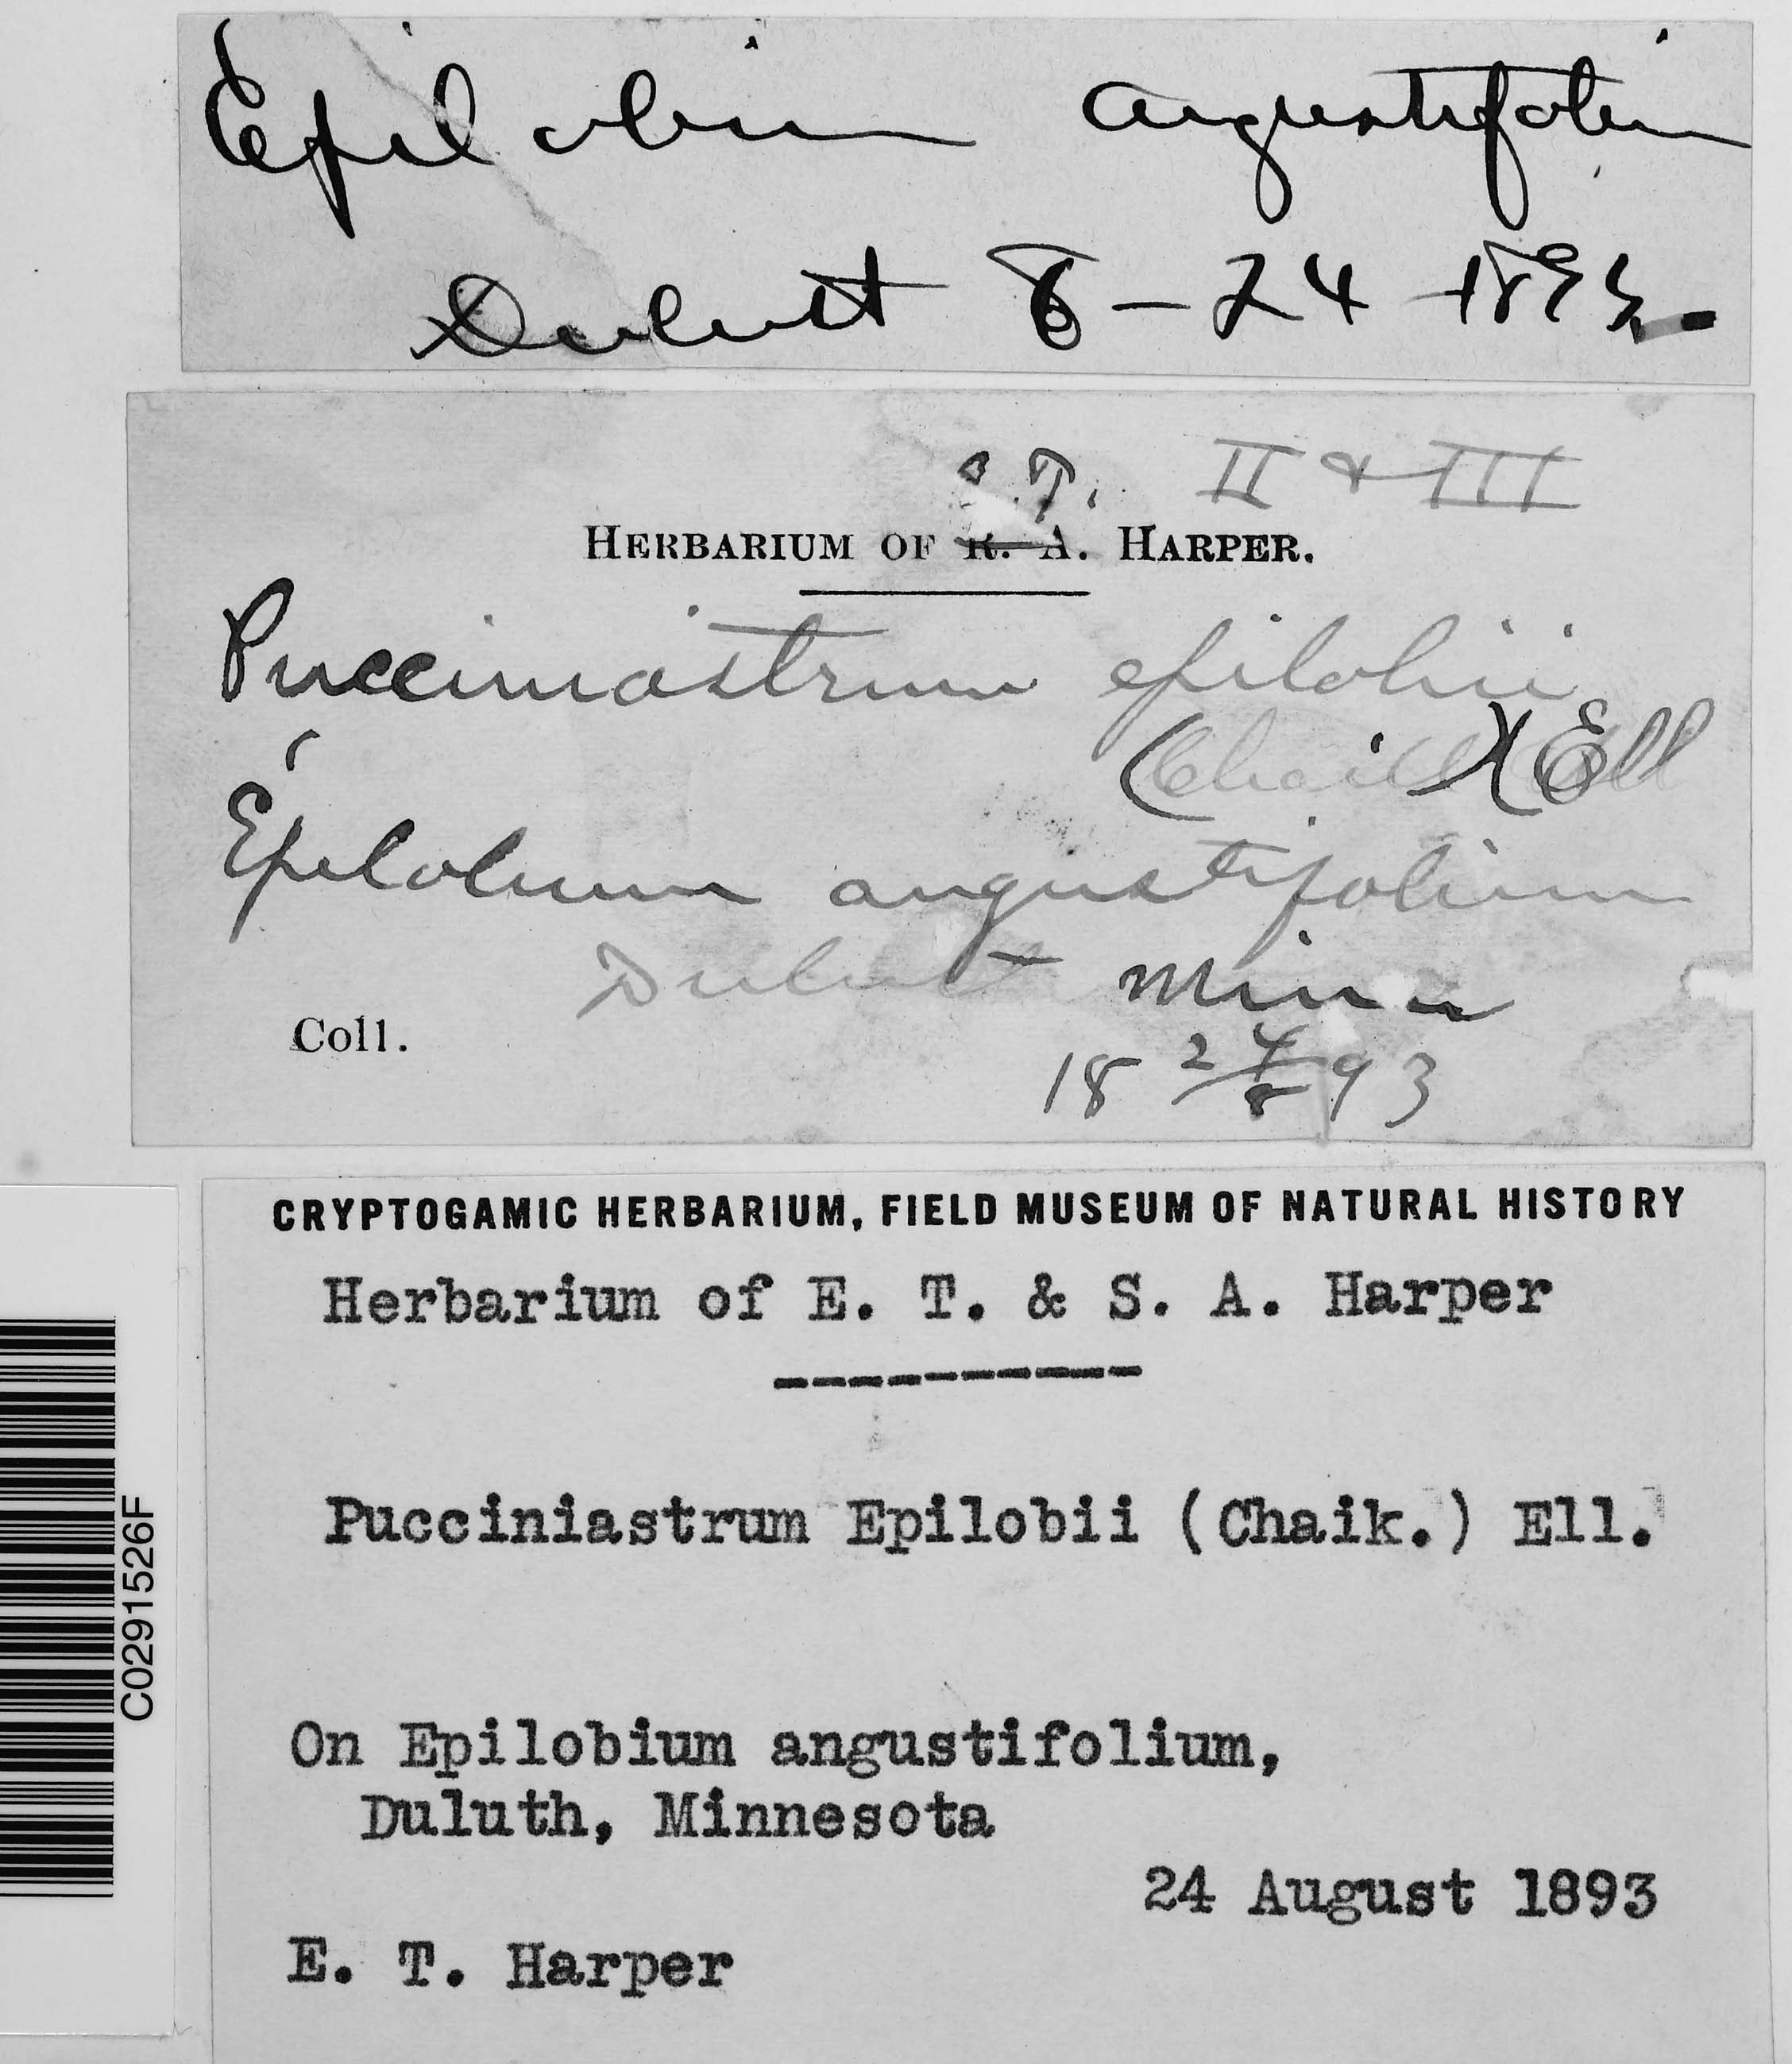 Epilobium angustifolium
Duluth 8-24 1893
. T. II & III
HERBARIUM OF R. A. HARPER.
Pucciniastrum epilobii
(Chaill) Ell
Epilobium angustifolium
Duluth Minn
Coll.
18 24/8 93
CRYPTOGAMIC HERBARIUM, FIELD MUSEUM OF NATURAL HISTORY
Herbarium of E. T. & S. A. Harper
----------
Pucciniastrum Epilobii (Chaik.) Ell.
On Epilobium angustifolium,
Duluth, Minnesota
24 August 1893
E. T. Harper
C0291526F